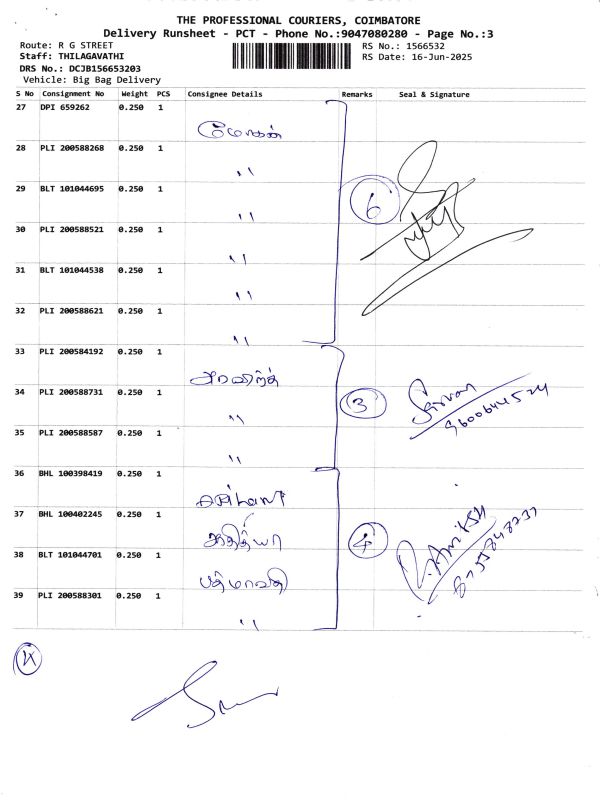 THE PROFESSIONAL COURIERS, COIMBATORE
Delivery Runsheet - PCT - Phone No.:9047080280 - Page No.:3
Route: R G STREET
RS No.: 1566532
Staff: THILAGAVATHI
RS Date: 16-Jun-2025
DRS No.: DCJB156653203
Vehicle: Big Bag Delivery
S No Consignment No Weight PCS Consignee Details Remarks Seal & Signature
27 DPI 659262 0.250 1
28 PLI 200588268 0.250 1
"
29 BLT 101044695 0.250 1
" 6
30 PLI 200588521 0.250 1
"
31 BLT 101044538 0.250 1
"
32 PLI 200588621 0.250 1
"
33 PLI 200584192 0.250 1
அரவிந்த்
34 PLI 200588731 0.250 1
" 3
35 PLI 200588587 0.250 1
"
36 BHL 100398419 0.250 1
37 BHL 100402245 0.250 1
4
38 BLT 101044701 0.250 1
பத்மாவதி
39 PLI 200588301 0.250 1
"